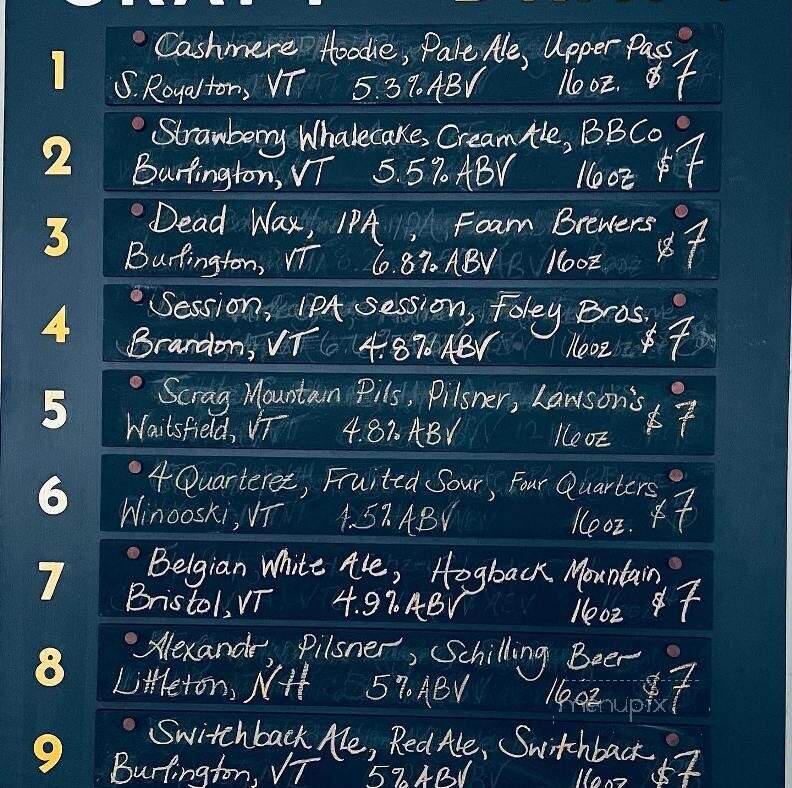 1
Cashmere Hoodie, Pale Ale, Upper Pass
S. Royalton, VT 5.3% ABV 16oz. $7
2
Strawberry Whalecake, Cream Ale, BBCo
Burlington, VT 5.5% ABV 16oz $7
3
Dead Wax, IPA, Foam Brewers
Burlington, VT 6.8% ABV 16oz. $7
4
Session, IPA session, Foley Bros.
Brandon, VT 4.8% ABV 16oz $7
5
Scrag Mountain Pils, Pilsner, Lawson's
Waitsfield, VT 4.8% ABV 16oz $7
6
4 Quarterez, Fruited Sour, Four Quarters
Winooski, VT 4.5% ABV 16oz. $7
7
Belgian White Ale, Hogback Mountain
Bristol, VT 4.9% ABV 16oz $7
8
Alexandr, Pilsner, Schilling Beer
Littleton, NH 5% ABV 16oz $7
menupix
9
Switchback Ale, Red Ale, Switchback
Burlington, VT 5% ABV 16oz $7